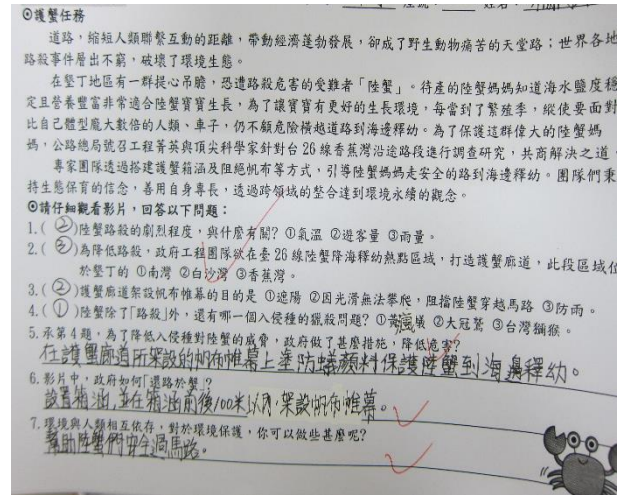 ◎護蟹任務
道路，縮短人類聯繫互動的距離，帶動經濟蓬勃發展，卻成了野生動物痛苦的天堂路；世界各地
路殺事件層出不窮，破壞了環境生態。
在墾丁地區有一群提心吊膽，恐遭路殺危害的受難者「陸蟹」。待產的陸蟹媽媽知道海水鹽度穩
定且營養豐富非常適合陸蟹寶寶生長，為了讓寶寶有更好的生長環境，每當到了繁殖季，縱使要面對
比自己體型龐大數倍的人類、車子，仍不顧危險橫越道路到海邊釋幼。為了保護這群偉大的陸蟹媽
媽，公路總局號召工程菁英與頂尖科學家針對台26線香蕉灣沿途路段進行調查研究，共商解決之道，
專家團隊透過搭建護蟹箱涵及阻絕帆布等方式，引導陸蟹媽媽走安全的路到海邊釋幼。團隊們秉
持生態保育的信念，善用自身專長，透過跨領域的整合達到環境永續的觀念。
◎請仔細觀看影片，回答以下問題：
1.( ② )陸蟹路殺的劇烈程度，與什麼有關? ①氣溫 ②遊客量 ③雨量。
2.( ③ )為降低路殺，政府工程團隊欲在臺26線陸蟹降海釋幼熱點區域，打造護蟹廊道，此段區域位
於墾丁的 ①南灣 ②白沙灣 ③香蕉灣。
3.( ② )護蟹廊道架設帆布帷幕的目的是 ①遮陽 ②因光滑無法攀爬，阻擋陸蟹穿越馬路 ③防雨。
4.( ① )陸蟹除了「路殺」外，還有哪一個入侵種的獵殺問題? ①黃瘋蟻 ②大冠鷲 ③台灣獼猴。
5.承第4題，為了降低入侵種對陸蟹的威脅，政府做了甚麼措施，降低危害?
在護蟹廊道所架設的帆布帷幕上塗防蟻顏料保護陸蟹到海邊釋幼。
6.影片中，政府如何「還路於蟹」?
設置箱涵，並在箱涵前後100米以內，架設帆布帷幕。
7.環境與人類相互依存，對於環境保護，你可以做些甚麼呢?
幫助陸蟹們安全過馬路。